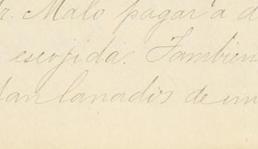 r. Malo pagará d
escojida. Tambien
tan lanados de un